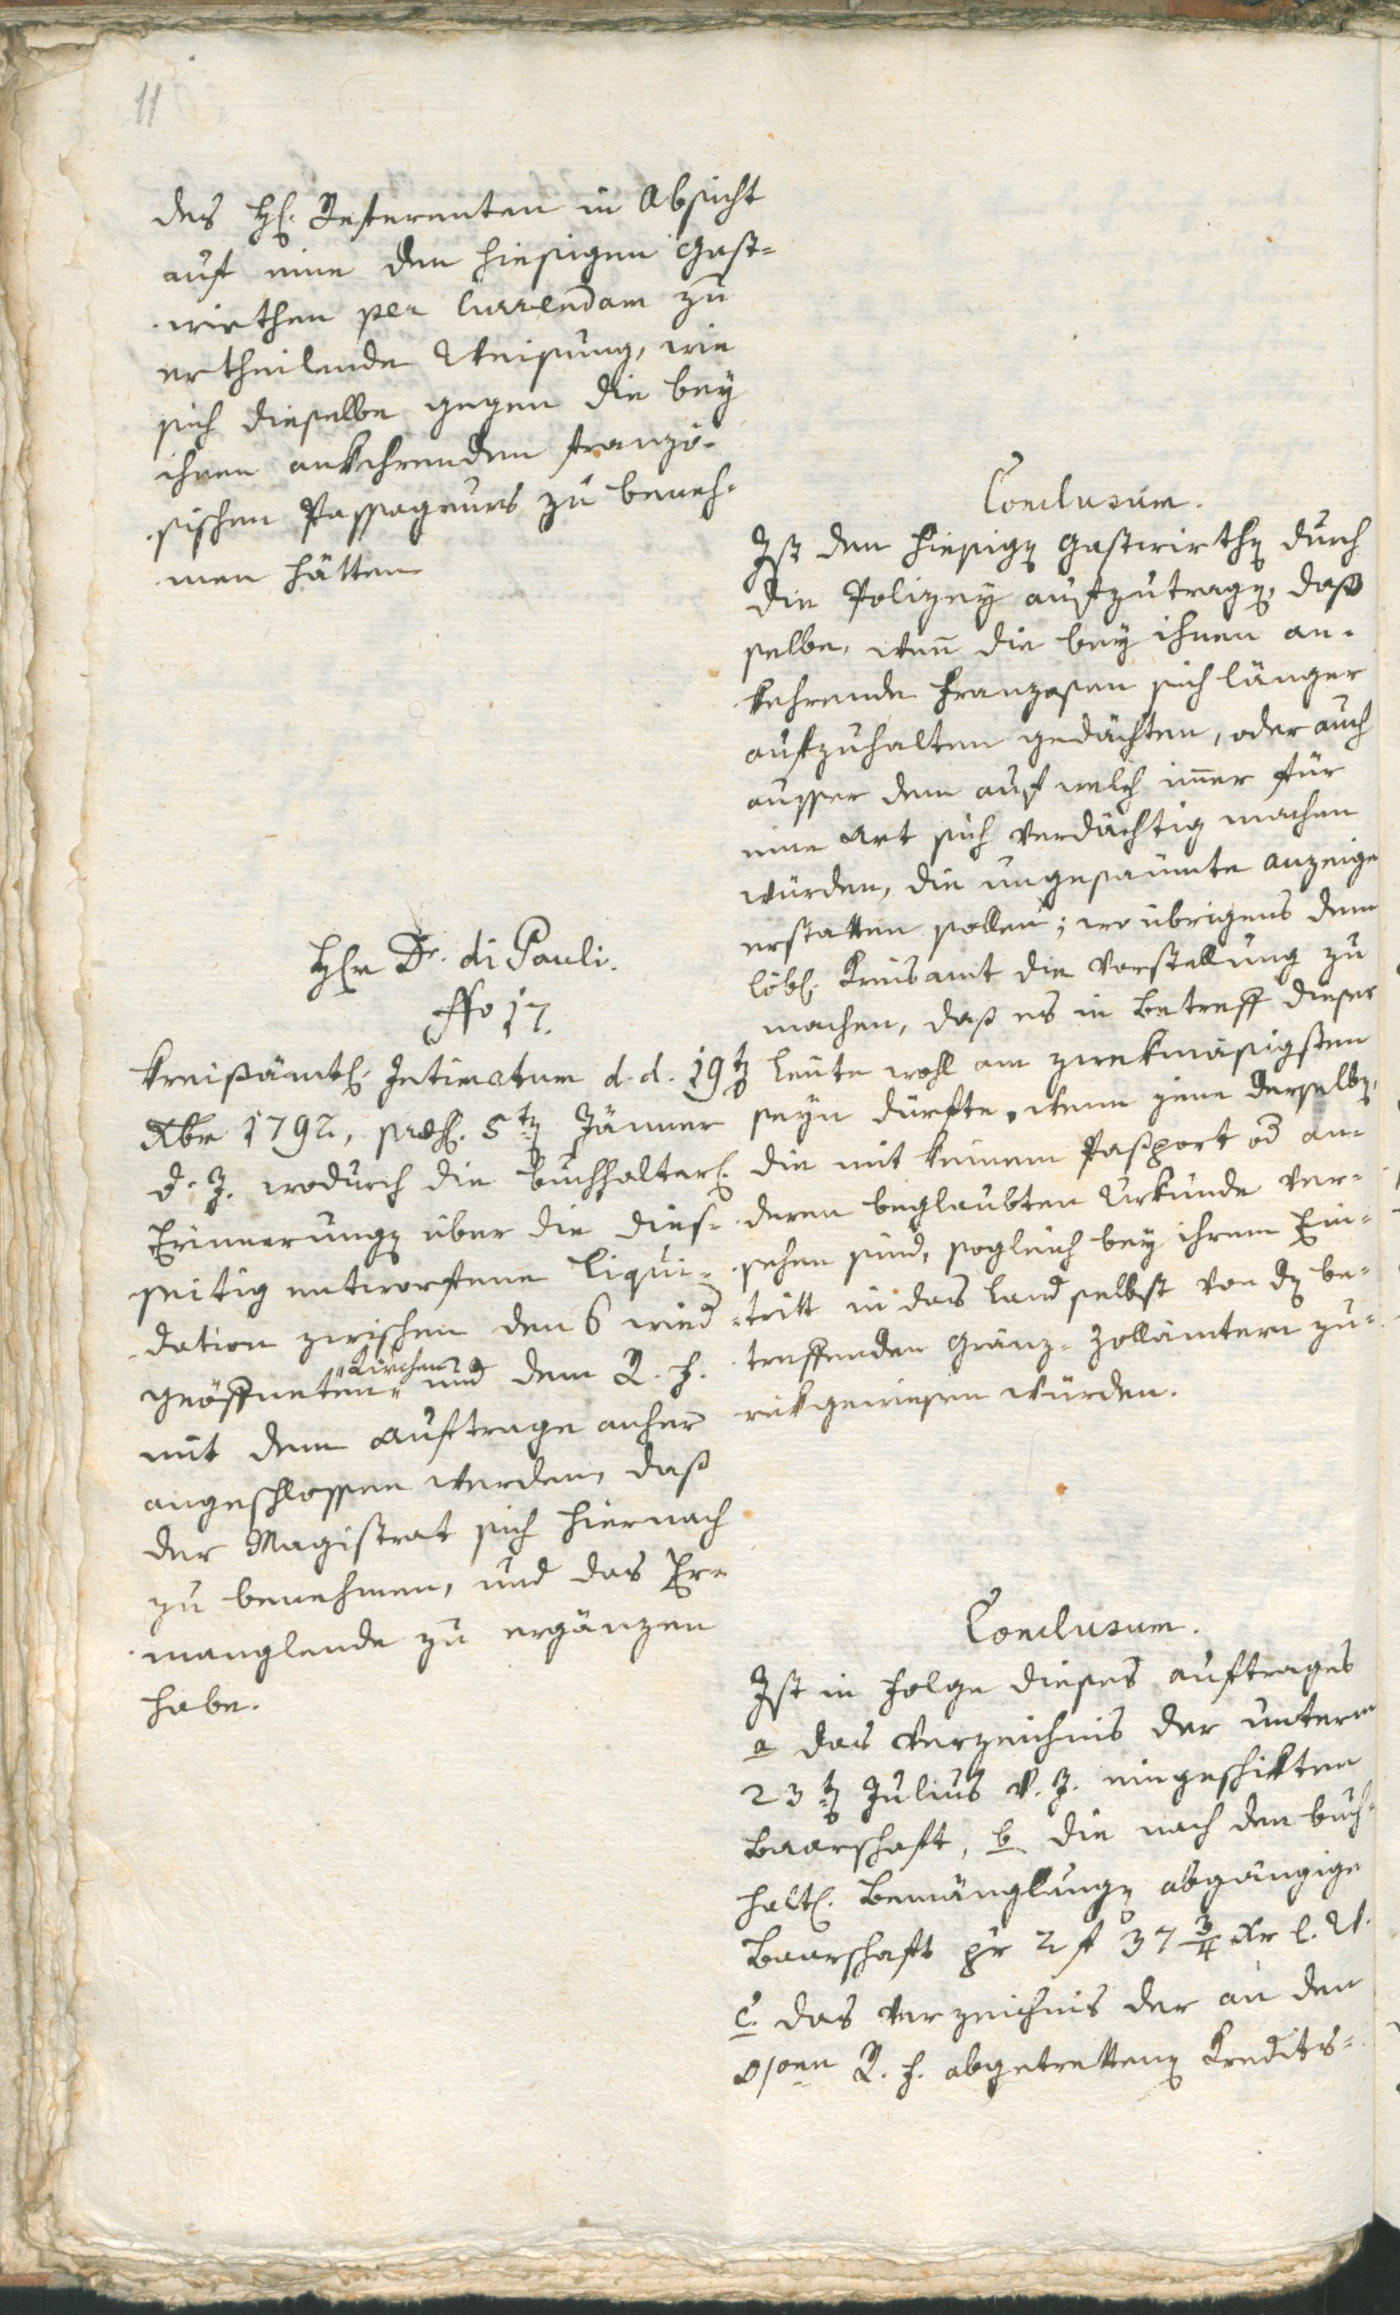 11
des H. Referenten in Absicht
auf eine den hiesigen Gast-
wirthen per Currendam zu
ertheilende Weisung, wie
sich dieselbe gegen die bey
ihnen ankehrenden franzö-
sischen Passageurs zu beneh-
men hätten
Conclusum.
Ist den hiesigen Gastwirthen durch
die Polizey aufzutragen, daß
selbe, wenn die bey ihnen an-
kehrende Franzosen sich länger
aufzuhalten gedächten, oder auch
ausser dem auf welch immer für
eine Art sich verdächtig machen
würden, die ungesaumte Anzeige
erstatten sollen; wo übrigens dem
löbl. Kreisamt die Vorstellung zu
machen, daß es in Betreff dieser
Leute wohl am zwekmäsigsten
seyn dürfte, wenn jene derselben,
die mit keinem Passport od an-
deren beglaubten Urkunde ver-
sehen sind, sogleich bey ihrem Ein-
tritt in das Land selbst von den be-
treffenden Gränz-Zollämtern zu-
rükgewiesen würden.
Hr Dr. di Pauli.
Nro 17.
Kreisämtl. Intimatum d. d. 19ten
Xbr 1792, præs. 5ten Jänner
d. J. wodurch die Buchhalter.
Erinnerungen über die dies-
seitig entworfene Liqui-
dation zwischen den 6 wied
geöffneten Kirchen und dem R. f.
mit dem Auftrage anher
angeschlossen werden, daß
der Magistrat sich hiernach
zu benehmen, und das Er-
manglende zu ergänzen
habe.
Conclusum.
Ist in Folge dieses Auftrages
a das Verzeichnis der unterm
23ten Julius v. J. eingeschikten
Baarschaft, b die nach den buch-
halt. Bemänglungen abgängige
Baarschaft pr 2 f 37 3/4 Xr
c. das Verzeichnis der an den
R. f. abgetrettenen Kredits-